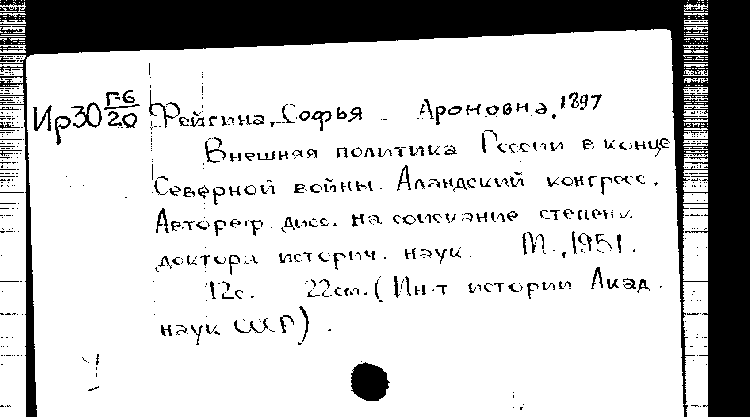 Ир30 Г-6/20 Фейгина, Софья Ароновна, 1897
Внешняя политика России в конце
Северной войны. Аландский конгресс.
Автореф. дисс. на соискание степени
доктора историч. наук. М., 1951.
12с. 22см. (Ин-т истории Акад.
наук СССР).